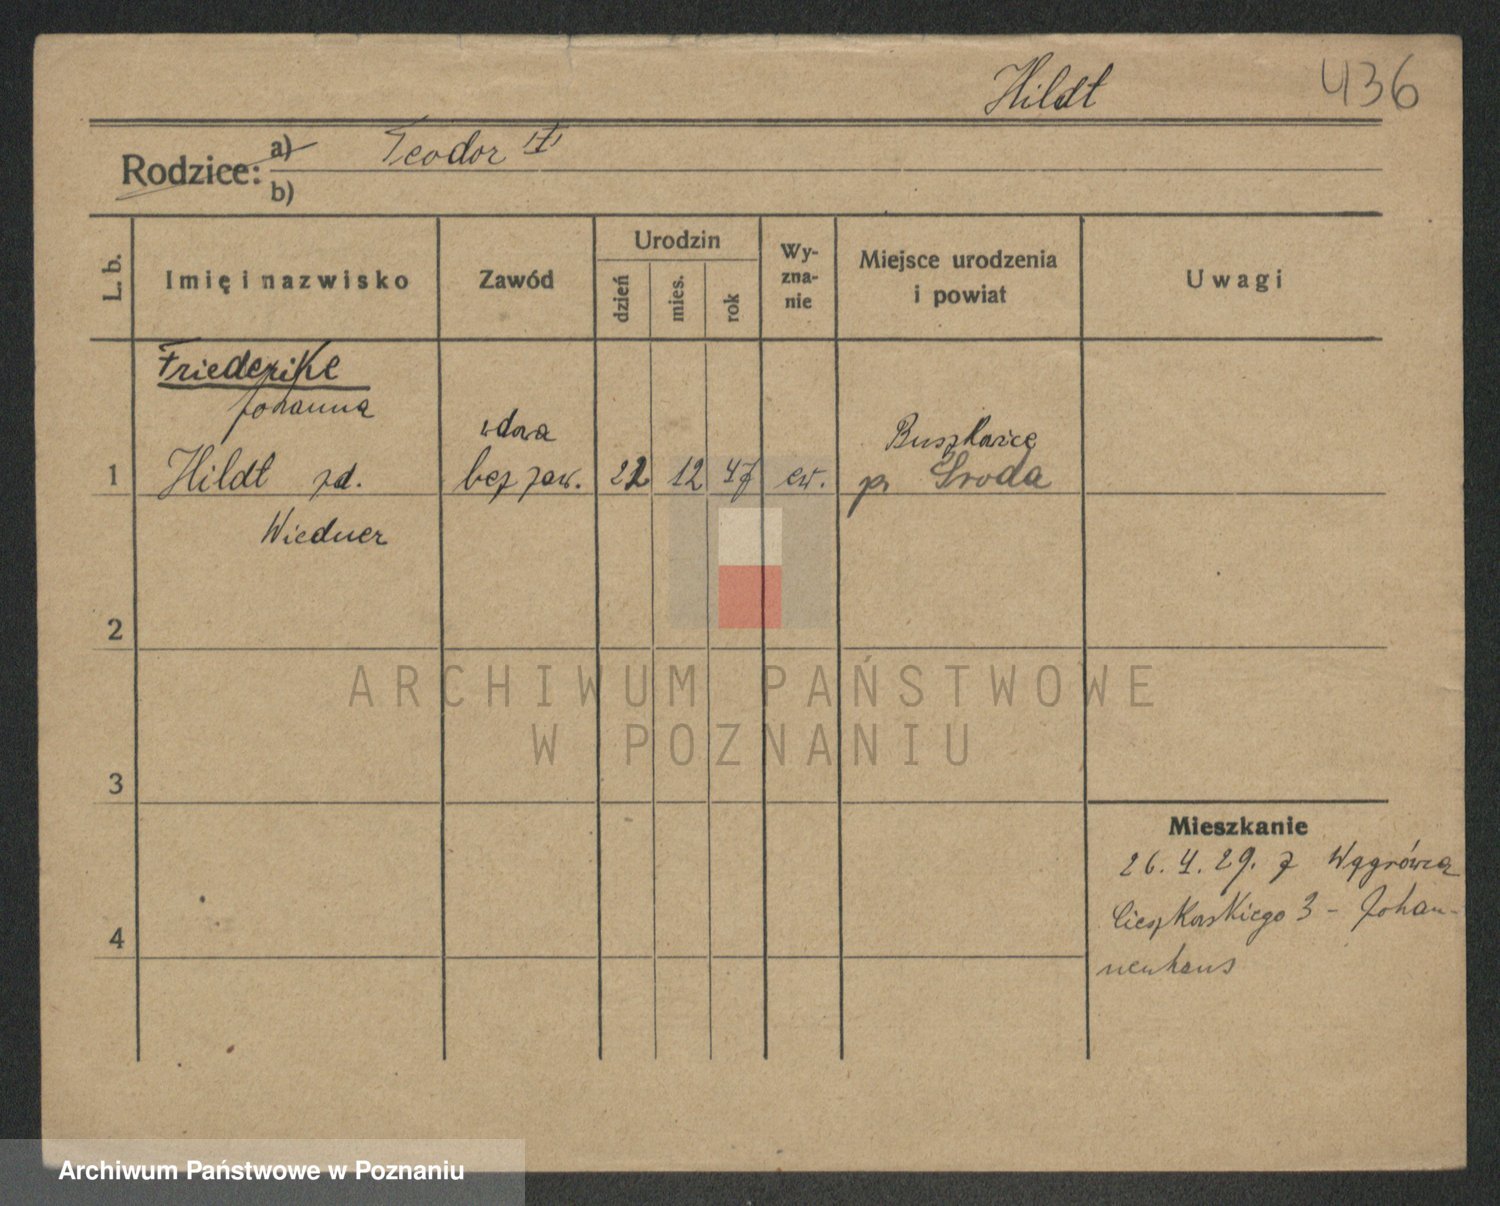 Hildt 436
Rodzice: a) Teodor
b)
L. b.
Imię i nazwisko
Zawód
Urodzin
dzień
mies.
rok
Wy-
zna-
nie
Miejsce urodzenia
i powiat
Uwagi
Friederike
Johanna
1 Hildt zd.
Wiedner
wdowa
bez zaw.
22 12 47 ew.
p. Środa
2
3
4
Mieszkanie
26. 4. 29. z Wągrówca
Cieszkowskiego 3 - Johan-
nenhaus
ARCHIWUM PAŃSTWOWE
W POZNANIU
Archiwum Państwowe w Poznaniu